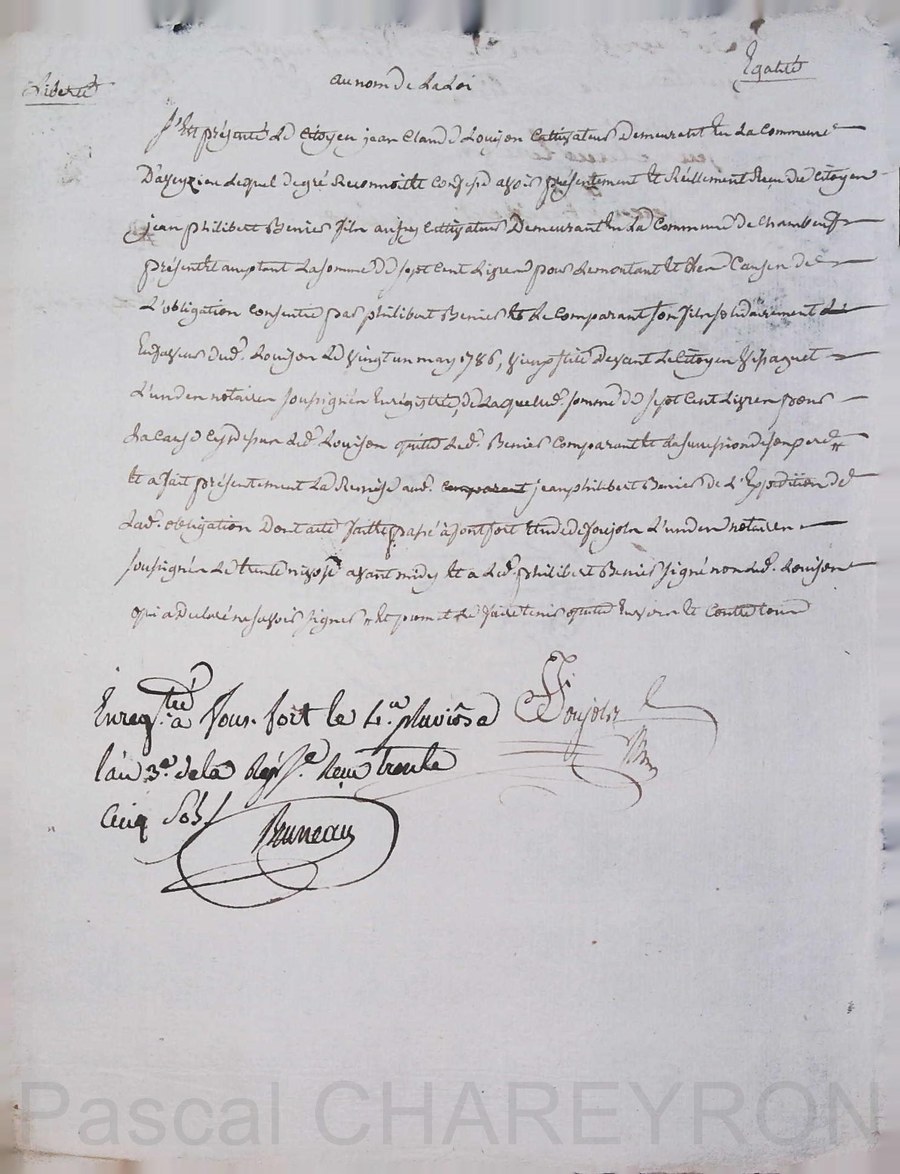 Liberté au nom de La Loi Égalité
S'est présenté Le Citoyen jean Claude Louison Cultivateur demeurant En La Commune
D'aveyzieu Lequel de gré Reconnoit et confesse avoir présentement et Réellement Reçu du Citoyen
jean philibert Benier fils Cultivateur Demeurant En La Commune de Chambeuf
présent et acceptant La somme de sept Cent Livres pour Le montant et Causes de
L'obligation consentie par philibert Benier et Le Comparant son fils solidairement
En faveur dud. Louison Le vingt un may 1786, devant Le Citoyen
L'un des notaires soussignés Enregistrée, de Laquelle d. somme de sept Cent Livres
La cause cy dessus Led. Louison quitte Led. Benier Comparant et
Et a fait présentement La Remise aud. comparant jean philibert Benier de L'Expédition de
Lad. obligation Dont acte fait et passé à fontfort Etude de Soujols L'un des notaires
soussignés Le trente nivose avant midy et a Led. philibert Benier signé non Led. Louison
qui a Déclaré ne savoir signer et promet de faire tenir quitte Envers et Contre tous
Enregtré à Fons-fort le 4.e pluviôse
l'an 3.e de la Rép.e reçu trente
Cinq Sols
Soujols
Bruneau
Pascal CHAREYRON